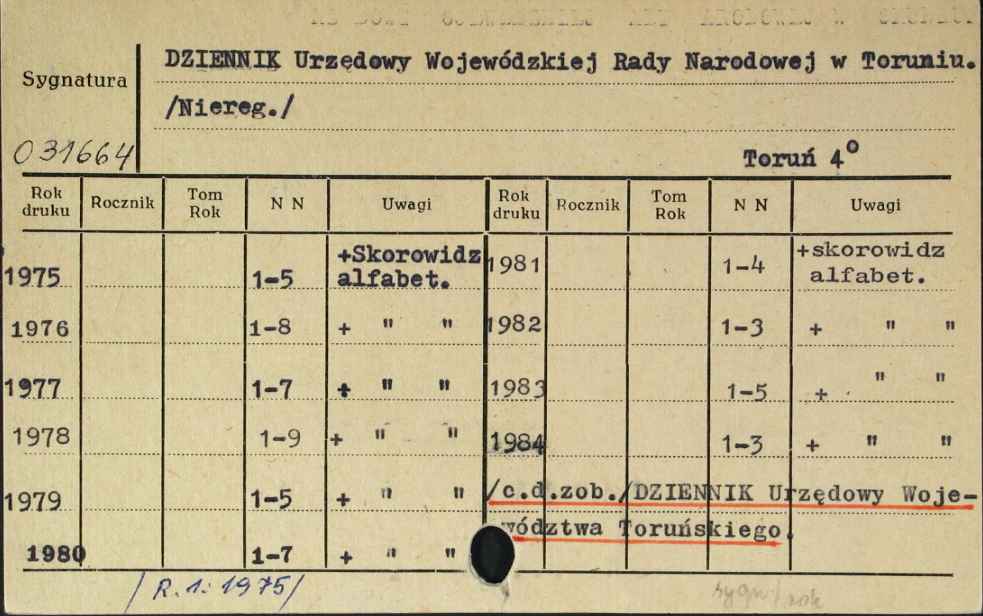 DZIENNIK Urzędowy Wojewódzkiej Rady Narodowej w Toruniu.
Sygnatura
/Niereg./
031664
Toruń 4°
Rok druku Rocznik Tom Rok N N Uwagi Rok druku Rocznik Tom Rok N N Uwagi
1975 1-5 +Skorowidz alfabet. 1981 1-4 +skorowidz alfabet.
1976 1-8 + " " 1982 1-3 + " "
1977 1-7 + " " 1983 1-5 + " "
1978 1-9 + " " 1984 1-3 + " "
1979 1-5 + " " /c.d.zob./DZIENNIK Urzędowy Woje-
wództwa Toruńskiego.
1980 1-7 + " "
/R.1: 1975/
sygn./rok